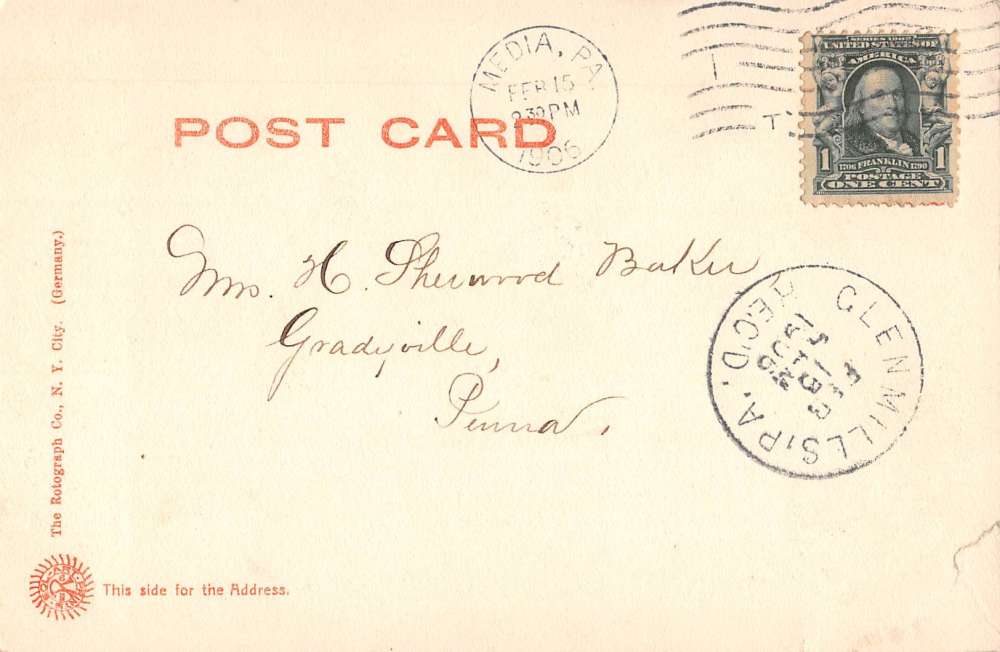 MEDIA, PA.
FEB 15
2 30 PM
1906
SERIES 1902
UNITED STATES OF
AMERICA
1 1
1706 FRANKLIN 1790
POSTAGE
ONE CENT
POST CARD
Mrs. H. Sherwood Baker
Gradyville,
Penna.
GLEN MILLS, PA. REC'D
The Rotograph Co., N. Y. City. (Germany.)
This side for the Address.